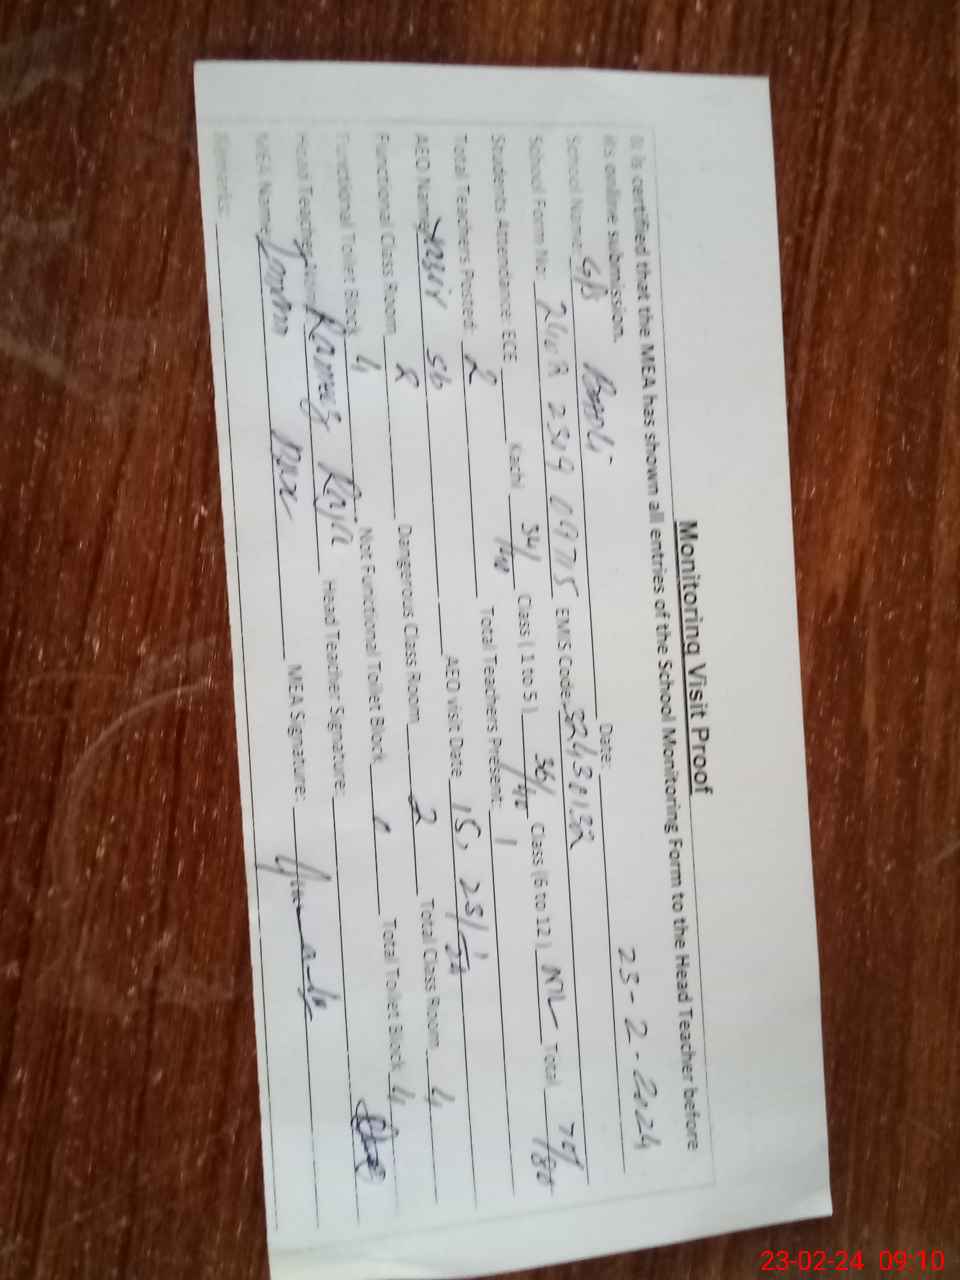 Monitoring Visit Proof
It is certified that the MEA has shown all entries of the School Monitoring Form to the Head Teacher before
it's online submission. Date: 23-2-2024
School Name: G/s
School Form No: EMIS Code: 32430122
Students Attendance: ECE Kachi 34/40 Class (1 to 5) 36/40 Class (6 to 12) NIL Total /80
Total Teachers Posted: 2 Total Teachers Present: 1
AEO Name: Yasir AEO visit Date 15, 23/
Functional Class Room Dangerous Class Room 2 Total Class Room 4
Functional Toilet Block 4 Not Functional Toilet Block Total Toilet Block 4
Head Teacher Name Rameez Raja Head Teacher Signature:
MEA Name: MEA Signature:
Remarks:
23-02-24 09:10